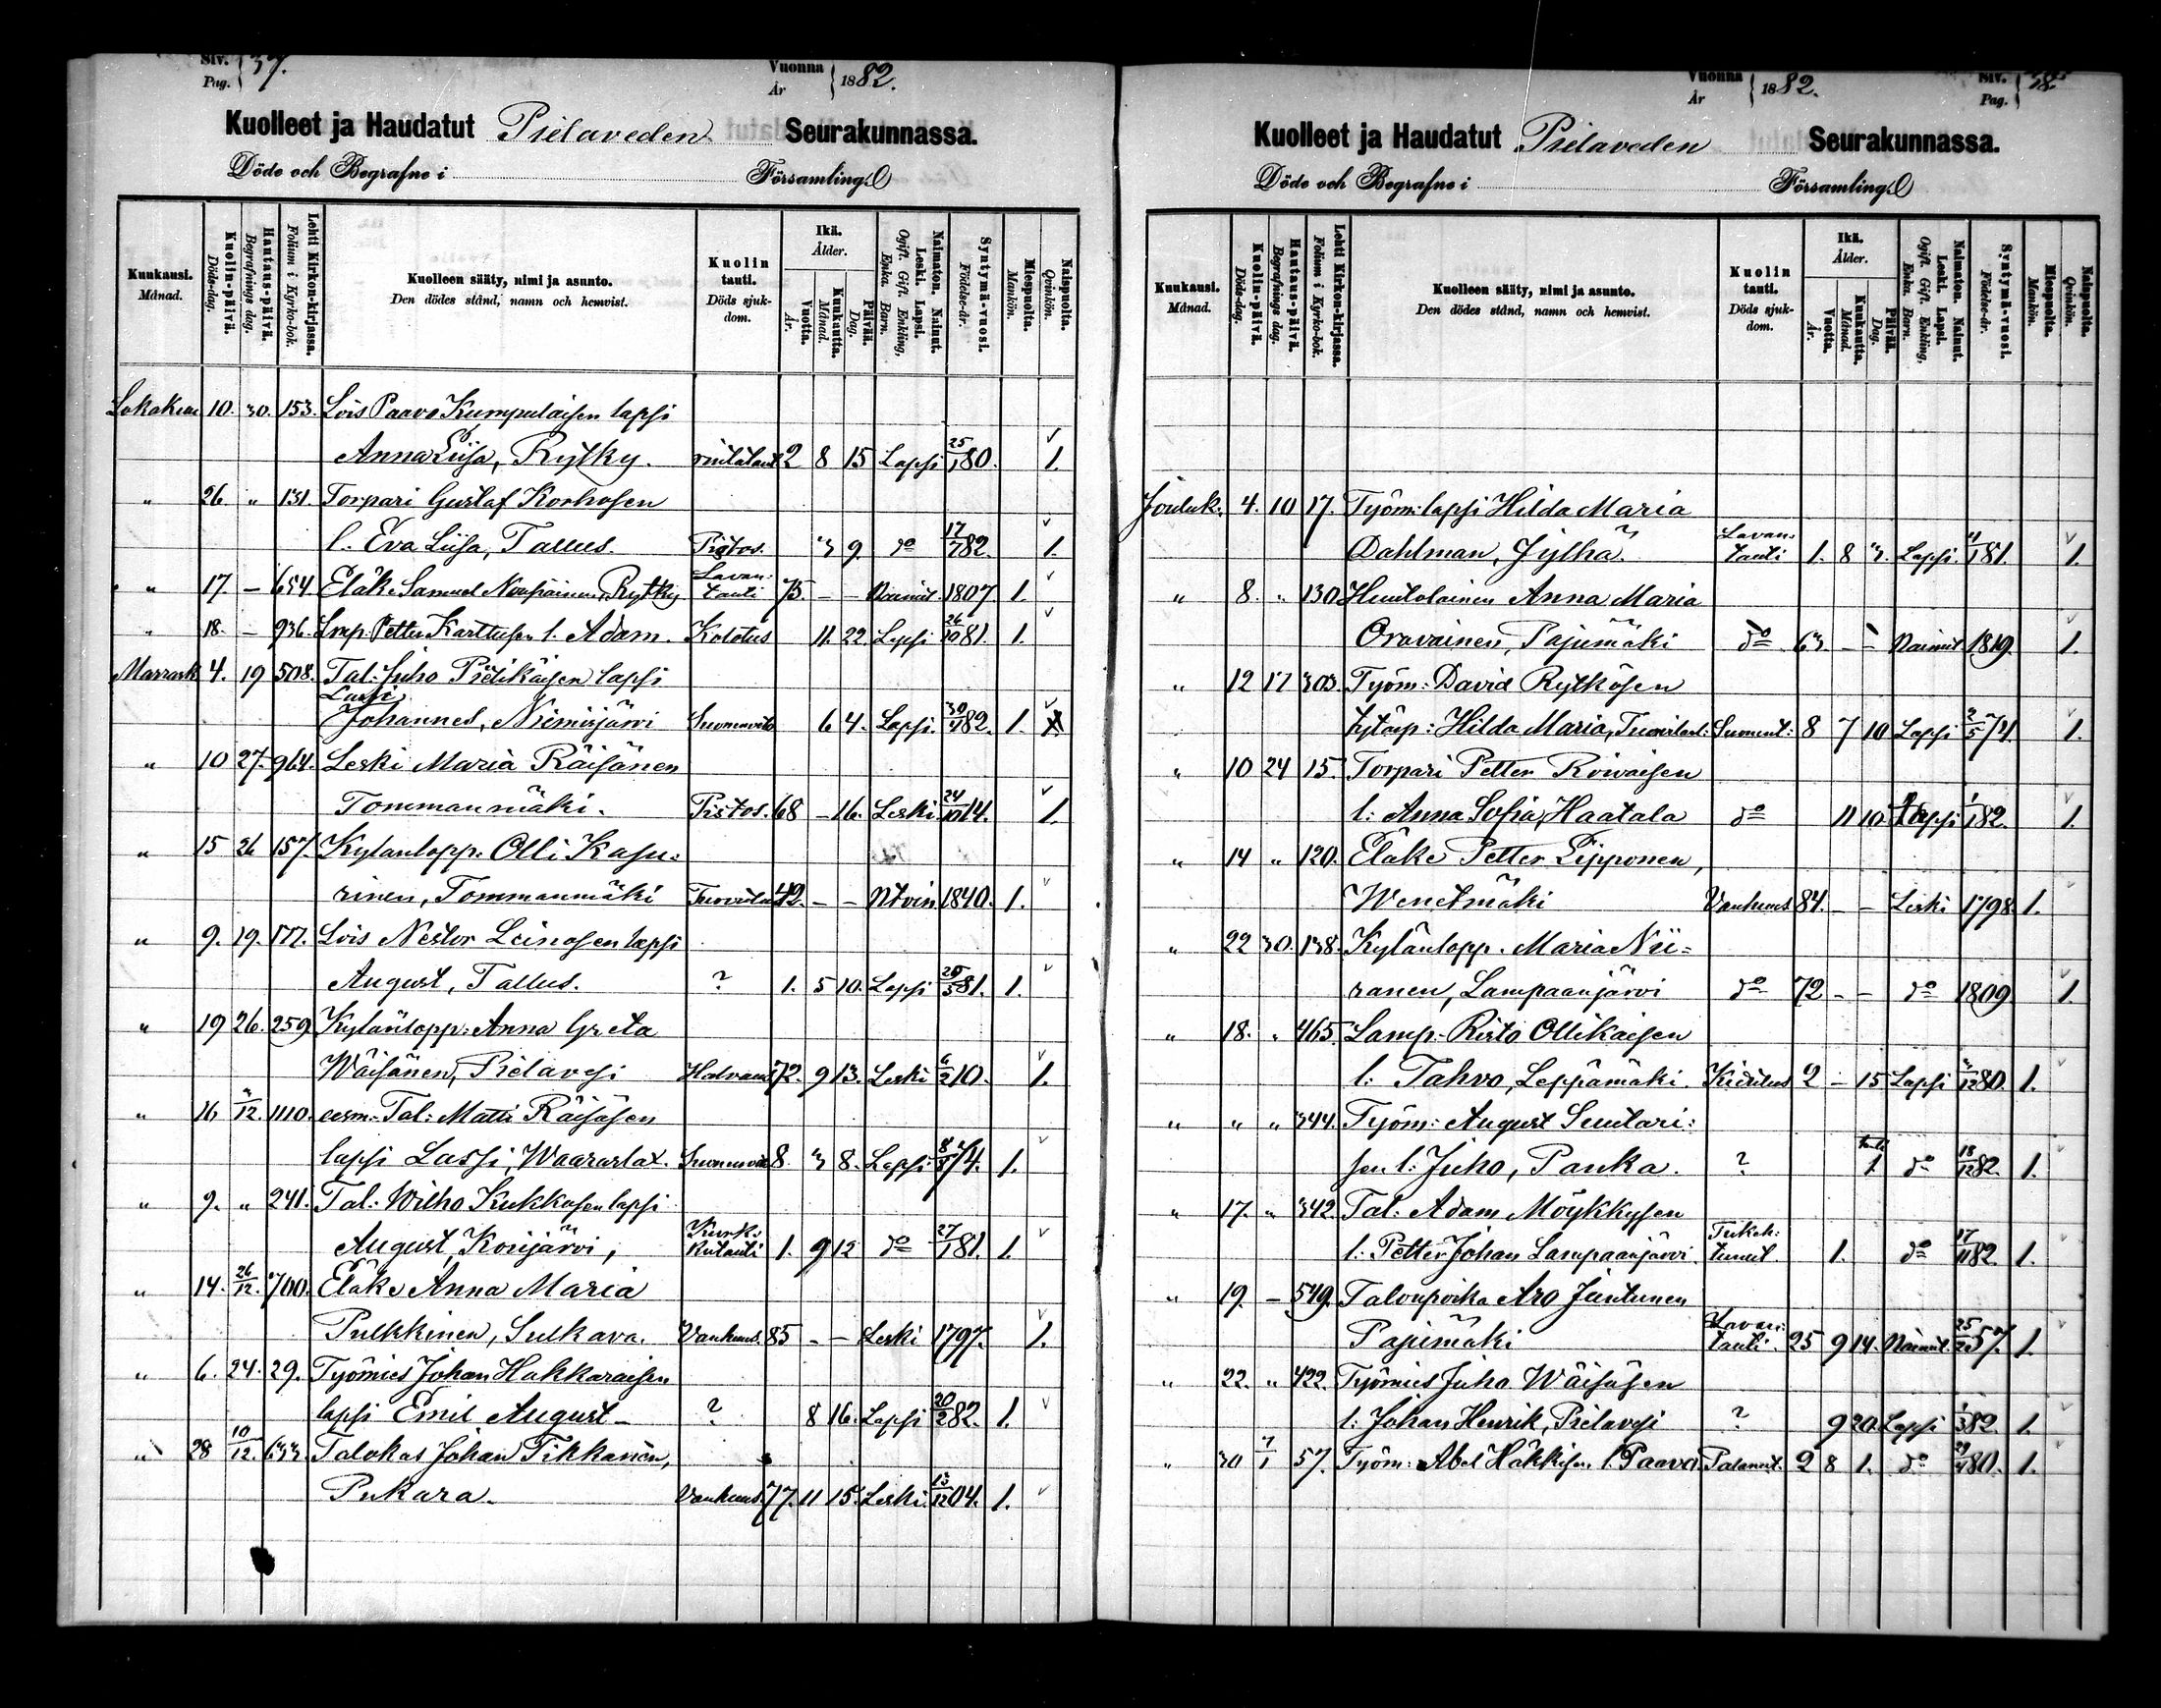 Siv. Pag. 37.
Vuonna År 1882.
Kuolleet ja Haudatut Pielaveden Seurakunnassa.
Döde och Begrafne i Församling.
Kuukausi. Månad. | Kuolin-päivä. Döds-dag. | Hautaus-päivä. Begrafnings dag. | Lehti Kirkon-kirjassa. Folium i Kyrko-bok. | Kuolleen sääty, nimi ja asunto. Den dödes stånd, namn och hemvist. | Kuolin tauti. Döds sjuk-dom. | Ikä. Ålder. Vuotta. År. Kuukautta. Månad. Päivää. Dag. | Naimaton. Nainut. Leski. Lapsi. Ogift. Gift. Enkling, Enka. Barn. | Syntymä-vuosi. Födelse-år. | Miespuolta. Mankön. | Naispuolta. Qvinkön.
Lokakuu 10. 30. 153. Lois Paavo Kumpulaisen lapsi
Anna Liisa, Rytky. rintataut 2 8 15 Lapsi 25/1 80. 1.
" 26. " 131. Torpari Gustaf Korhosen
l. Eva Liisa, Tallus. Pistos. 3 9 do 17/7 82. 1.
" 17. – 654. Eläke Samuel Noupainen, Rytky Lavan: tauti 75. – – Nainut. 1807. 1.
" 18. – 936. Lmp. Petter Karttusen l. Adam. Kolotus 11. 22. Lapsi 26/10 81. 1.
Marrask 4. 19 508. Tal: Juho Pietikäisen lapsi
Lassi
Johannes, Niemisjärvi Suonenveto 6 4. Lapsi. 30/4 82. 1.
" 10 27. 964. Leski Maria Räisänen
Tommanmäki. Pistos. 68 – 16. Leski. 24/10 14. 1.
" 15 26 157. Kylänlopp. Olli Kasu:
rinen, Tommanmäki 42. – – Ntoin 1840. 1.
" 9. 19. 177. Lois Nestor Leinosen lapsi
August, Tallus. ? 1. 5 10. Lapsi 29/5 81. 1.
" 19 26. 259 Kylänlopp: Anna Greta
Wäisänen, Pielavesi Halvaus 72. 9 13. Leski 6/2 10. 1.
" 16 3/12. 1110. eesm: Tal: Matti Räisäsen
lapsi Lassi, Waararlax. 8. 3 8. Lapsi 8/8 74. 1.
" 9. " 241. Tal: Wilho Kukkosen lapsi
August, Koivujärvi, Kurk: kutauti 1. 9 12 do 27/1 81. 1.
" 14. 26/12. 700. Eläke Anna Maria
Pulkkinen, Sulkava. Vanhuus. 85 – – Leski 1797. 1.
" 6. 24. 29. Työmies Johan Hakkaraisen
lapsi Emil August – ? 8 16. Lapsi 20/2 82. 1.
" 28 10/12. 633. Talokas Johan Tikkanen,
Pukara. Vanhuus. 77. 11 15. Leski. 13/12 04. 1.
Vuonna År 1882.
Siv. Pag. 38.
Kuolleet ja Haudatut Pielaveden Seurakunnassa.
Döde och Begrafne i Församling.
Kuukausi. Månad. | Kuolin-päivä. Döds-dag. | Hautaus-päivä. Begrafnings dag. | Lehti Kirkon-kirjassa. Folium i Kyrko-bok. | Kuolleen sääty, nimi ja asunto. Den dödes stånd, namn och hemvist. | Kuolin tauti. Döds sjuk-dom. | Ikä. Ålder. Vuotta. År. Kuukautta. Månad. Päivää. Dag. | Naimaton. Nainut. Leski. Lapsi. Ogift. Gift. Enkling, Enka. Barn. | Syntymä-vuosi. Födelse-år. | Miespuolta. Mankön. | Naispuolta. Qvinkön.
Jouluk. 4. 10 17. Työm: lapsi Hilda Maria
Dahlman, Jylhä. Lavan: tauti 1. 8 3. Lapsi. /1 81. 1.
" 8. " 130 Huutolainen Anna Maria
Oravainen, Pajumäki do 63. – – Nainut 1819. 1.
" 12 17 303. Työm: David Rytkösen
tytärp: Hilda Maria, Suonent: 8 7 10 Lapsi 2/5 74. 1.
" 10 24 15. Torpari Petter Roivaisen
l: Anna Sofia, Haatala do 11 10 Lapsi 1/1 82. 1.
" 14 " 120. Eläke Petter Lipponen,
Wenetmäki Vanhuus 84. – – Leski 1798. 1.
" 22 30. 138. Kylänlopp. Maria Nii=
ranen, Lampaanjärvi do 72 – – do 1809 1.
" 18. " 465. Lamp. Risto Ollikaisen
l: Tahvo, Leppämäki. Kidutus 2 – 15 Lapsi 3/12 80. 1.
" " " 344. Työm: August Suutari:
sen l: Juho, Pauka. ? 1. do 18/12 82. 1.
" 17. " 342. Tal: Adam Möykkysen
l: Petter Johan Lampaanjärvi. Tukeh: tunut. 1. do 17/11 82. 1.
" 19. – 549. Talonpoika Aro Juntunen
Pajumäki Lavan: tauti. 25 9 14. Nainut. 25/2 57. 1.
" 22. " 422. Työmies Juho Wäisäsen
l: Johan Henrik, Pielavesi ? 9 20. Lapsi 1/3 82. 1.
" 30 7/1 57. Työm: Abel Häkkisen l: Paavo. Palanut. 2 8 1. do 29/4 80. 1.